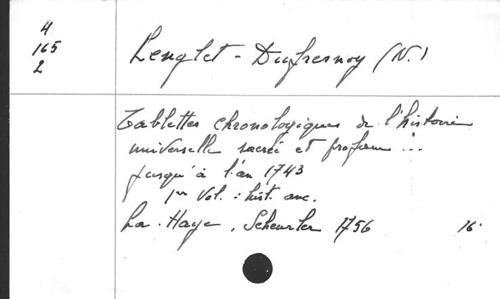 4
165
2
Lenglet-Dufresnoy (N.)
Tablettes chronologiques de l'histoire
universelle sacrée et profane ...
jusqu'à l'an 1743
1er Vol. : hist. anc.
La Haye, Scheurler 1756 16°